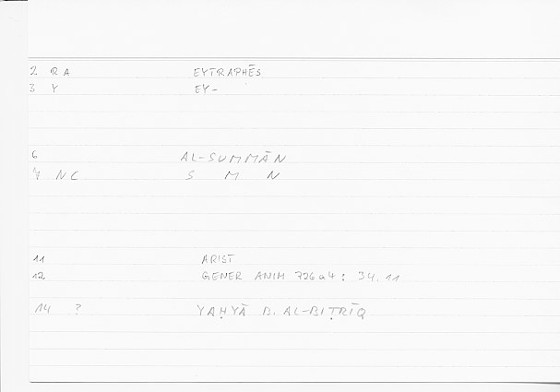 2 QA EYTRAPHĒS
3 Y EY-
6 AL-SUMMĀN
7 NC S M N
11 ARIST
12 GENER ANIM 726a4: 34.11
14 ? YAḤYĀ B. AL-BIṬRĪQ